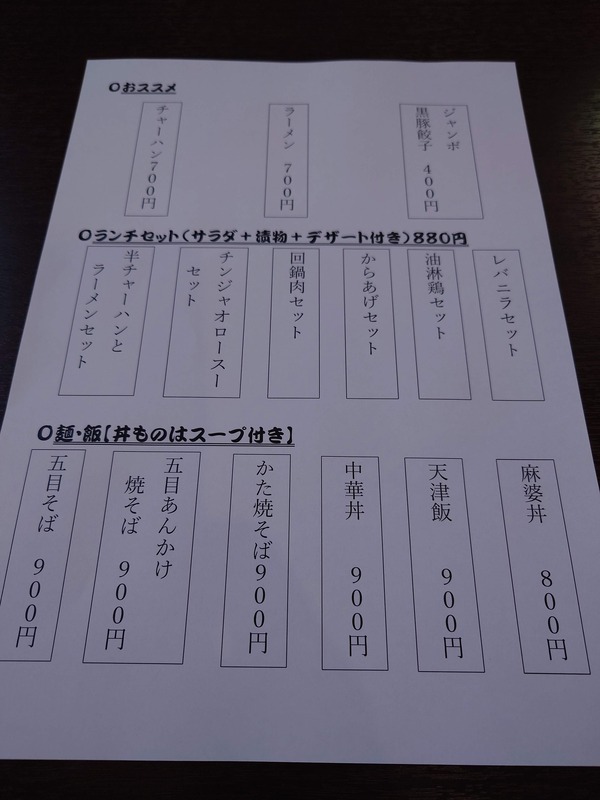 〇おススメ
ジャンボ
黒豚餃子 400円
ラーメン 700円
チャーハン700円
〇ランチセット(サラダ+漬物+デザート付き)880円
レバニラセット
油淋鶏セット
からあげセット
回鍋肉セット
チンジャオロースー
セット
半チャーハンと
ラーメンセット
〇麺・飯【丼ものはスープ付き】
麻婆丼 800円
天津飯 900円
中華丼 900円
かた焼そば900円
五目あんかけ
焼そば 900円
五目そば 900円